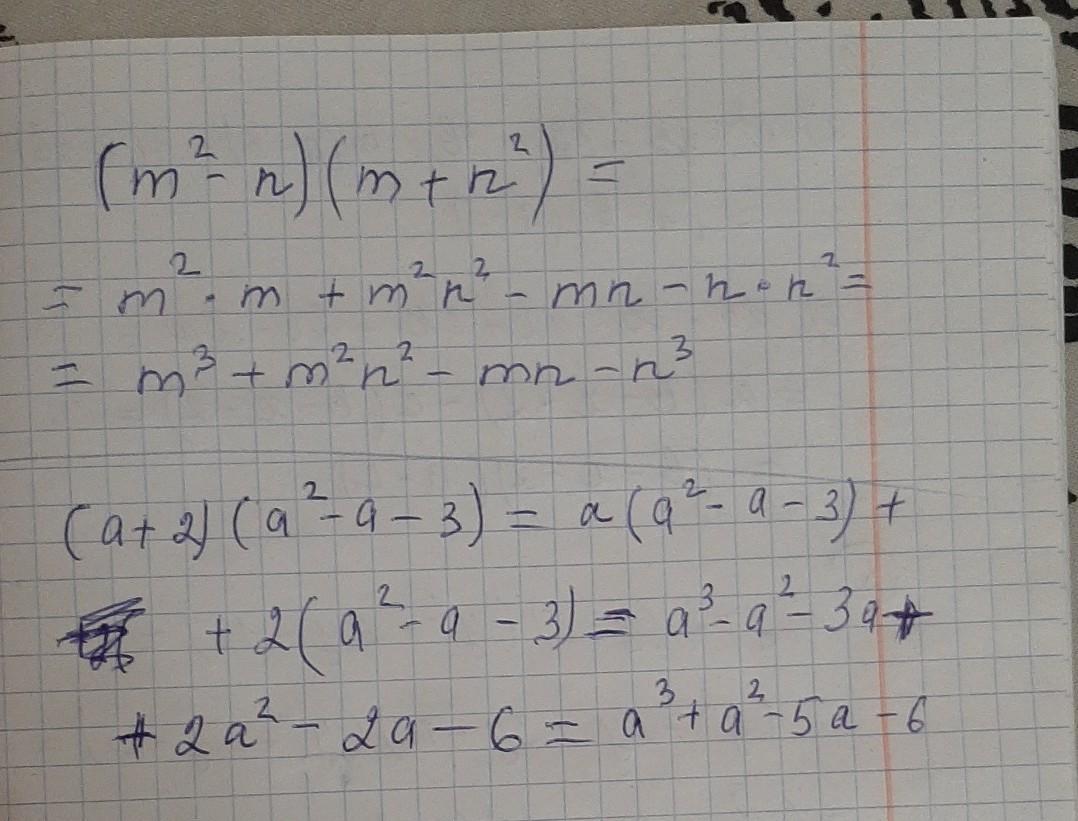 (m² - n)(m + n²) =
= m² · m + m²n² - mn - n · n² =
= m³ + m²n² - mn - n³
(a + 2)(a² - a - 3) = a(a² - a - 3) +
+ 2(a² - a - 3) = a³ - a² - 3a +
+ 2a² - 2a - 6 = a³ + a² - 5a - 6